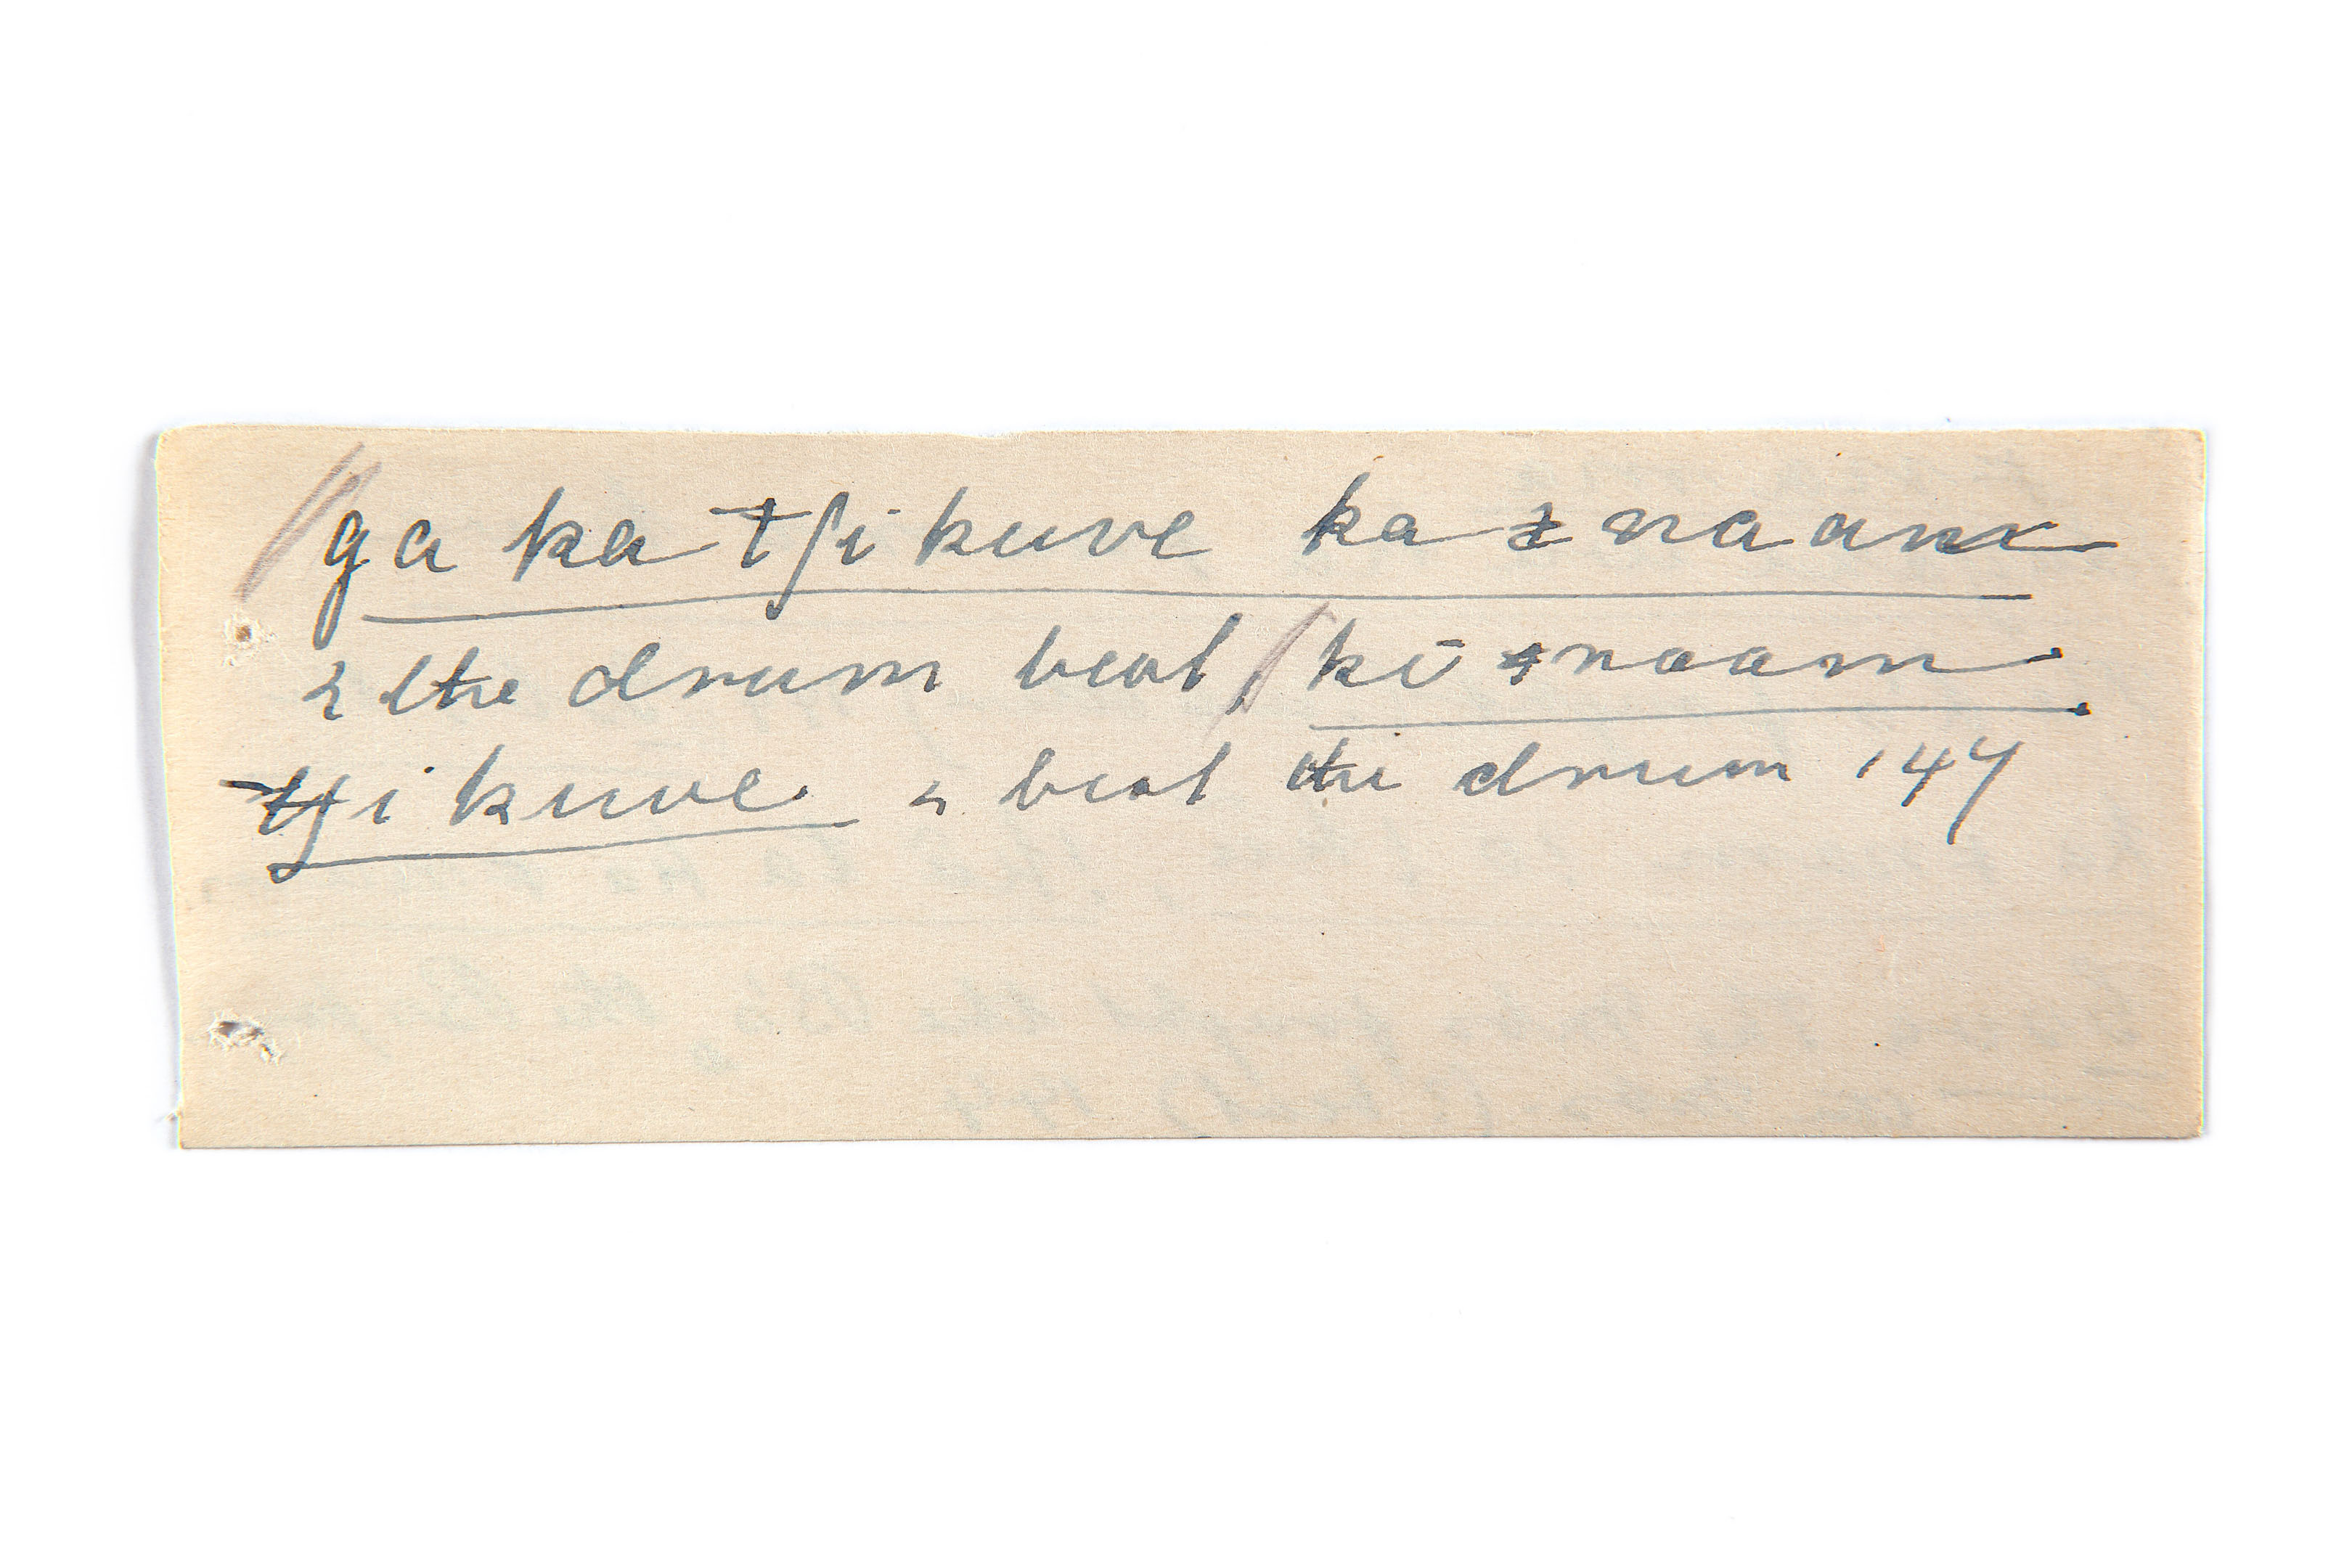 ga ka tʃikuve ka ǂnaanx
& the drum beat / kē ǂnaam
tʃikuve & beat the drum 147